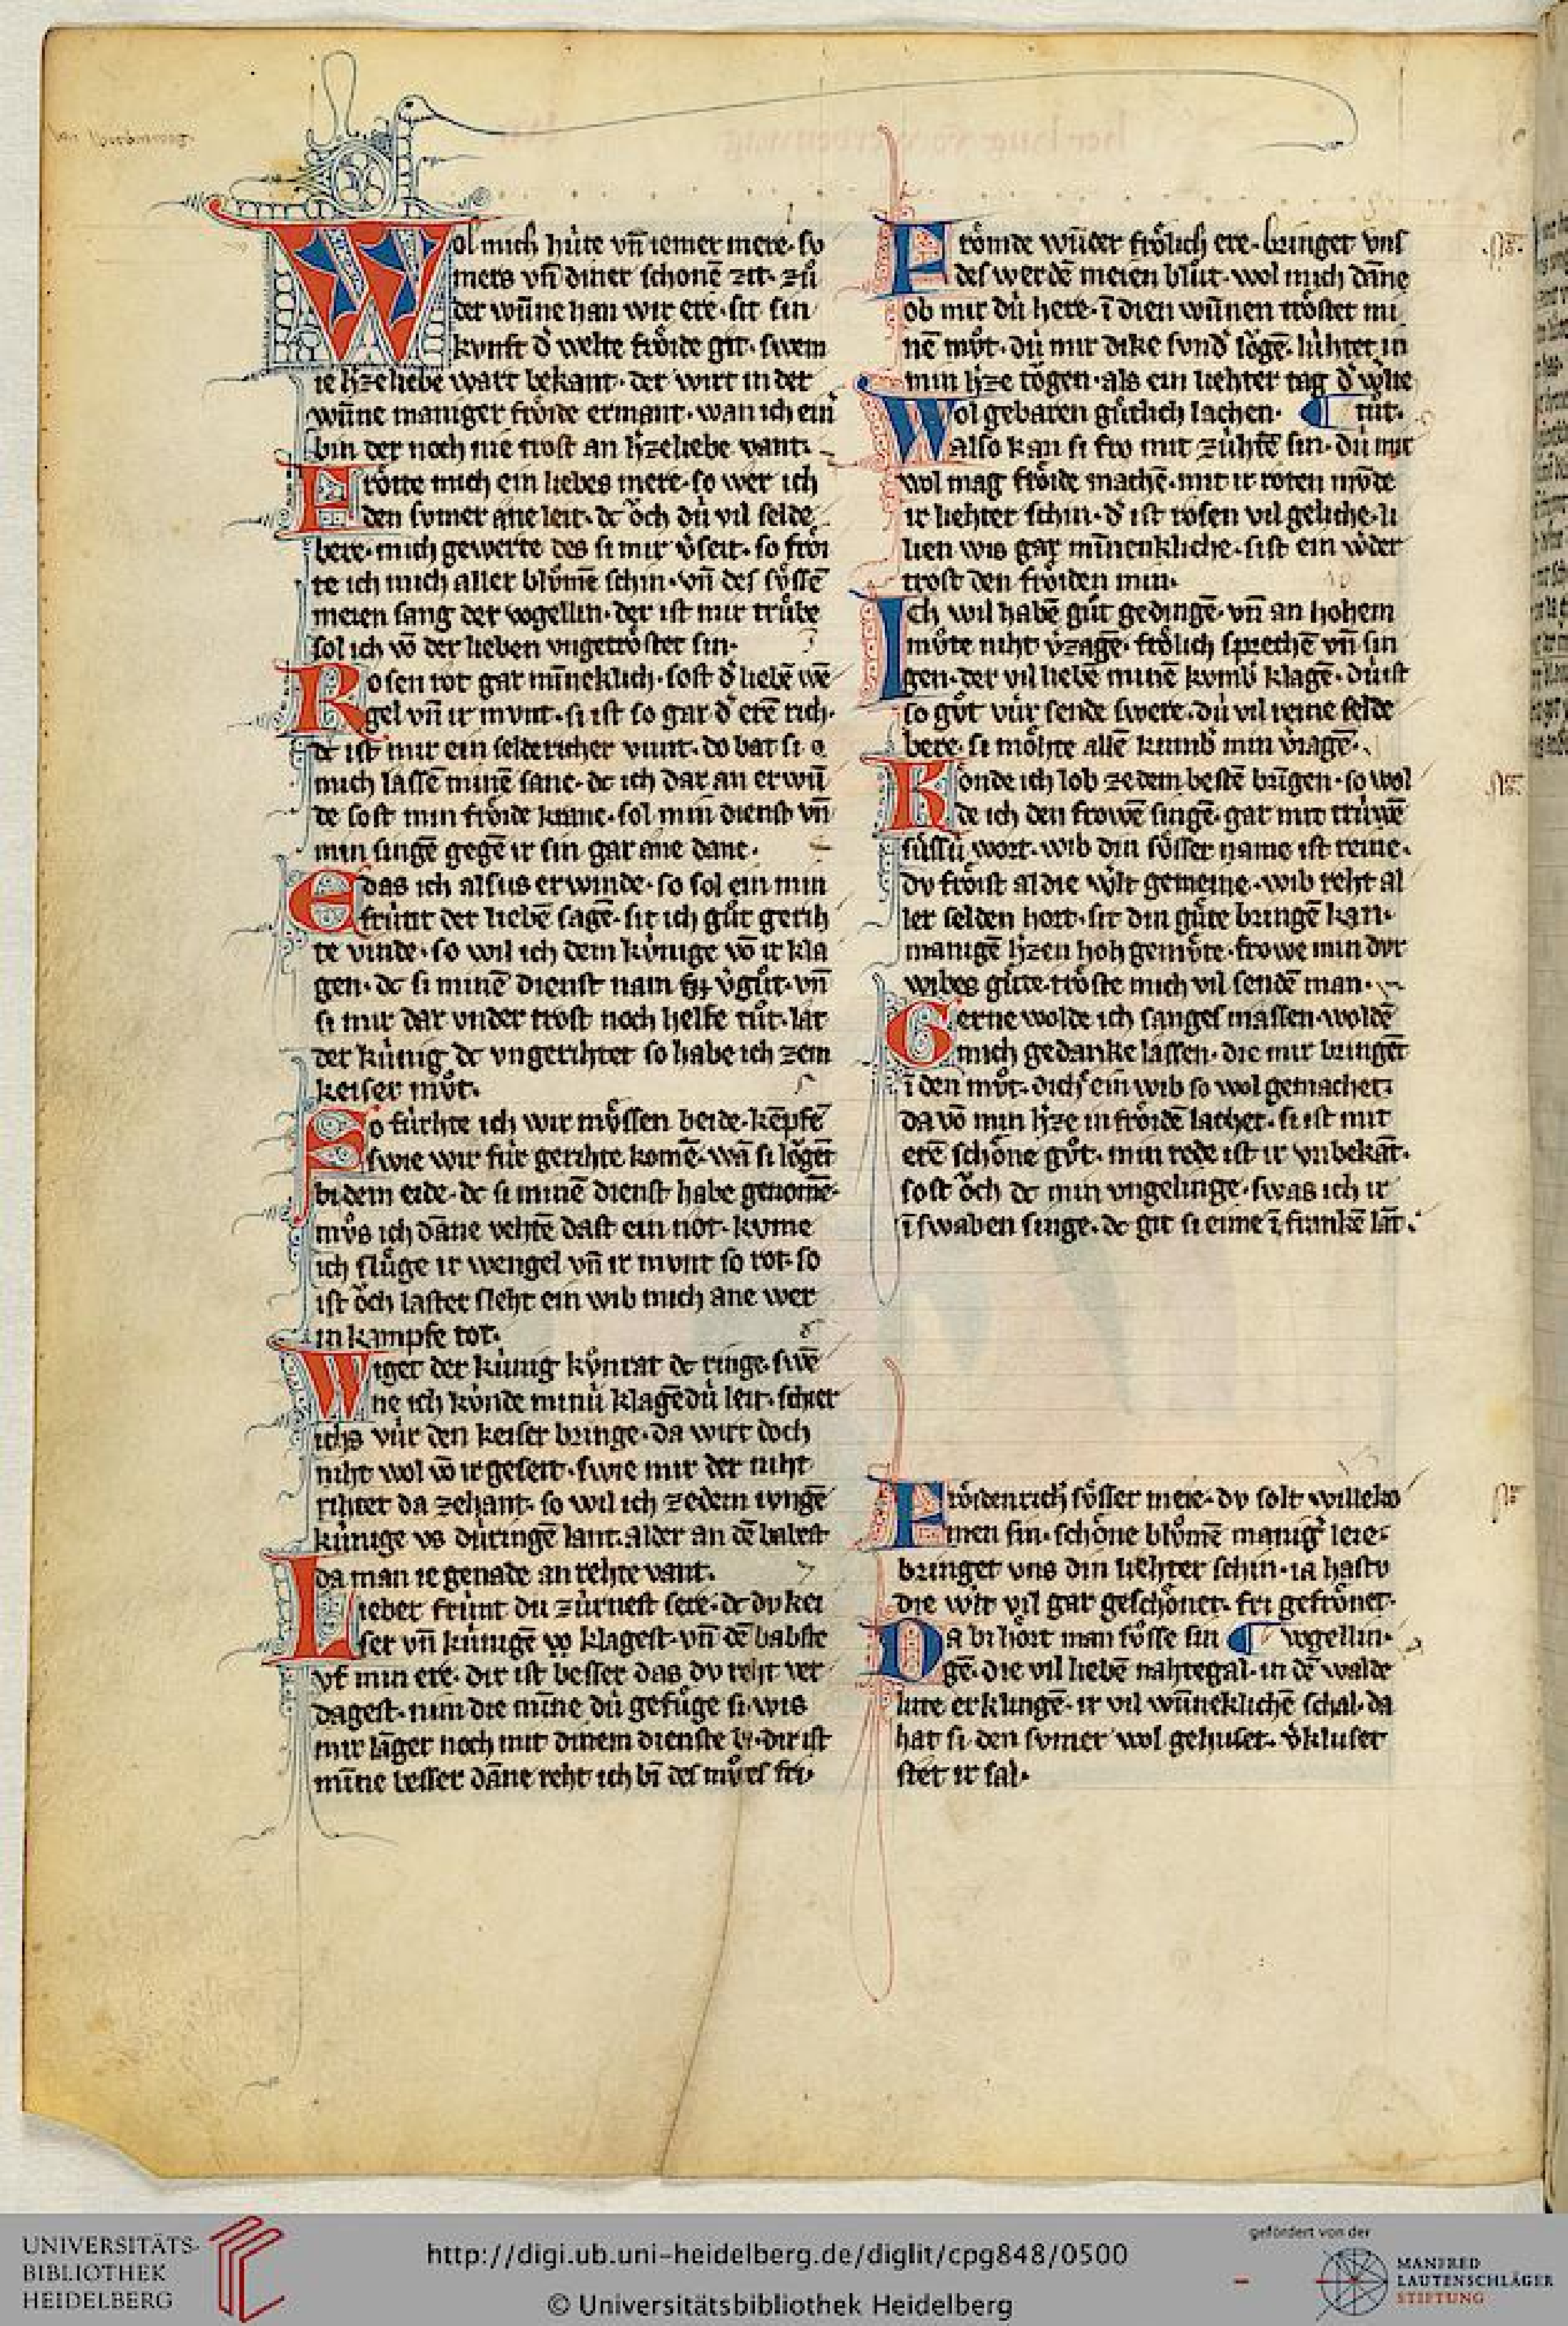 Wol mich hùte vn̄ iemer mere· sv
mers vn̄ diner schonē zit· zů
der wūne han wir ere· sit sin
kvnft d' welte frǒide git· swem
ie h'ze liebe wart bekant· der wirt in der
wūne maniger frǒide ermant· wan ich ein
bin der noch nie trost an h'ze liebe vant·
Frǒite mich ein liebes mere· so wer ich
den svmer ane leit· dc ǒch dù vil selde
bere· mich gewerte des si mir v'seit· so frǒi
te ich mich aller blv̊mē schin· vn̄ des sv̊ssē
meien sang der vogellin· der ist mir trůbe
sol ich vō der lieben vngetrǒstet sin·
Rosen rot gar mīneklich· sost d' liebē wē
gel vn̄ ir mvnt· si ist so gar d' erē rich·
dc ist mir ein seldericher vunt· do bat si
mich lassē minē sanc· dc ich dar an erwū
de sost min frǒide kranc· sol min dienst vn̄
min singē gegē ir sin gar ane danc·
E das ich alsus erwinde· so sol ein min
frùnt der liebē sagē· sit ich gůt gerih
te vinde· so wil ich dem kùnige vō ir kla
gen· dc si minē dienst nam v'gůt· vn̄
si mir dar vnder trost noch helfe tůt· lat
der kùnig dc vngerihtet so habe ich zem
keiser mv̊t·
So fùrhte ich wir mv̊ssen beide· kēpfē
swie wir fùr gerihte komē· wā si lǒgēt
bi dem eide· dc si minē dienst habe genomē·
mv̊s ich dāne vehtē dast ein not· kvme
ich slůge ir wengel vn̄ ir mvnt so rot· so
ist ǒch laster sleht ein wib mich ane wer
in kampfe tot·
Wiget der kùnig kv̊nrat dc ringe· swē
ne ich kùnde minù klagēdù leit· schier
ichs vùr den keiser bringe· da wirt doch
niht wol vō ir geseit· swie mir der niht
rihtet da zehant· so wil ich zedem ivngē
kùnige vs dùringē lant· alder an dē babest
da man ie genade an rehte vant·
Lieber frùnt du zùrnest sere· dc dv kei
ser vn̄ kùnigē vo klagest· vn̄ dē babste
vf min ere· dir ist besser das dv reht ver
dagest· nim die mīne dù gefůge si· wis
mir lāger noch mit dinem dienste bi· dir ist
mīne besser dāne reht ich bī des mv̊tes fri·
Frǒmde wūder frǒlich ere· bringet vns
des werdē meien blůt· wol mich dāne
ob mir dù here· ī dien wūnen trǒstet mi
nē mv̊t· dù mir dike svnd' lǒgē· lùhtet in
min h'ze tǒgen· als ein liehter tag d' w'lte
tůt·
Wol gebaren gůtlich lachen·
also kan si fro mit zùhtē sin· dù mir
wol mag frǒide machē· mit ir roten mv̄de
ir liehter schin· d' ist rosen vil geliche· li
lien wis gar mīnenkliche· sist ein w'der
trost den frǒiden min·
Ich wil habē gůt gedingē· vn̄ an hohem
mv̊te niht v'zagē· frǒlich sprechē vn̄ sin
gen· der vil liebē minē kvmb' klagē· dùist
so gv̊t vùr sende swere· dù vil reine selde
bere· si mǒhte allē kumb' min v'iagē·
Konde ich lob zedem bestē brīgen· so wol
de ich den frowē singē· gar mit trùwē
sùssù wort· wib din sv̊sser name ist reine·
dv frǒist al die w'lt gemeine· wib reht al
ler selden hort· sit din gůte bringē kan·
manigē h'zen hoh gemv̊te· frowe min dvr
wibes gůte· trǒste mich vil sendē man·
Gerne wolde ich sanges massen· woldē
mich gedanke lassen· die mir bringēt
ī den mv̊t· dich ein wib so wol gemachet·
da vō min h'ze in frǒidē lachet· si ist mit
erē schǒne gv̊t· min rede ist ir vnbekāt·
sost ǒch dc min vngelinge· swas ich ir
ī swaben singe· dc git si eime ī frankē lāt·
Frǒidenrich sv̊sser meie· dv solt willeko
men sin· schǒne blv̊mē manig' leie·
bringet vns din liehter schin· ia hastv
die w'lt vil gar geschǒnet· fri gekrǒnet·
vogellin·
Da bi hort man sv̊sse sin
gē· die vil liebē nahtegal· in dē walde
lute erklingē· ir vil wūneklichē schal· da
hat si den svmer wol gehuset· v'kluset
stet ir sal·
UNIVERSITÄTS-
BIBLIOTHEK
HEIDELBERG
http://digi.ub.uni-heidelberg.de/diglit/cpg848/0500
© Universitätsbibliothek Heidelberg
gefördert von der
MANFRED
LAUTENSCHLÄGER
STIFTUNG